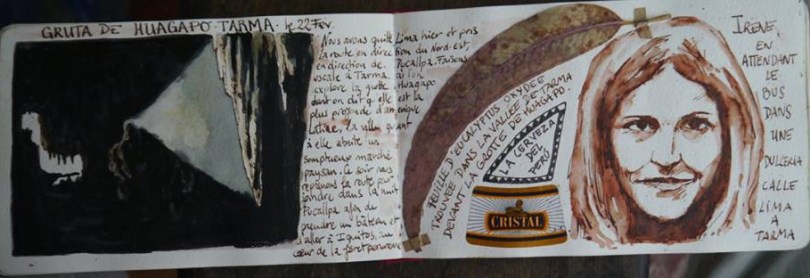 GRUTA DE HUAGAPO TARMA. le 22 Fév.
Nous avons quitté Lima hier et pris
la route en direction du Nord-est,
en direction de Pucallpa. Faisons
escale à Tarma où l'on
explore la grotte Huagapo
dont on dit qu'elle est la
plus profonde d'amérique
Latine, la ville quant
à elle abrite un
somptueux marché
paysan. Ce soir nous
reprenons la route pour
joindre dans la nuit
Pucallpa afin de
prendre un bâteau et
d'aller à Iquitos, au
cœur de la forêt péruvienne
FEUILLE D'EUCALYPTUS OXYDÉE
TROUVÉE DANS LA VALLÉE DE TARMA
DEVANT LA GROTTE DE HUAGAPO.
LA CERVEZA
DEL
PERÚ
CRISTAL
IRÈNE,
EN
ATTENDANT
LE
BUS
DANS
UNE
DULCERIA
CALLE
LIMA
A
TARMA